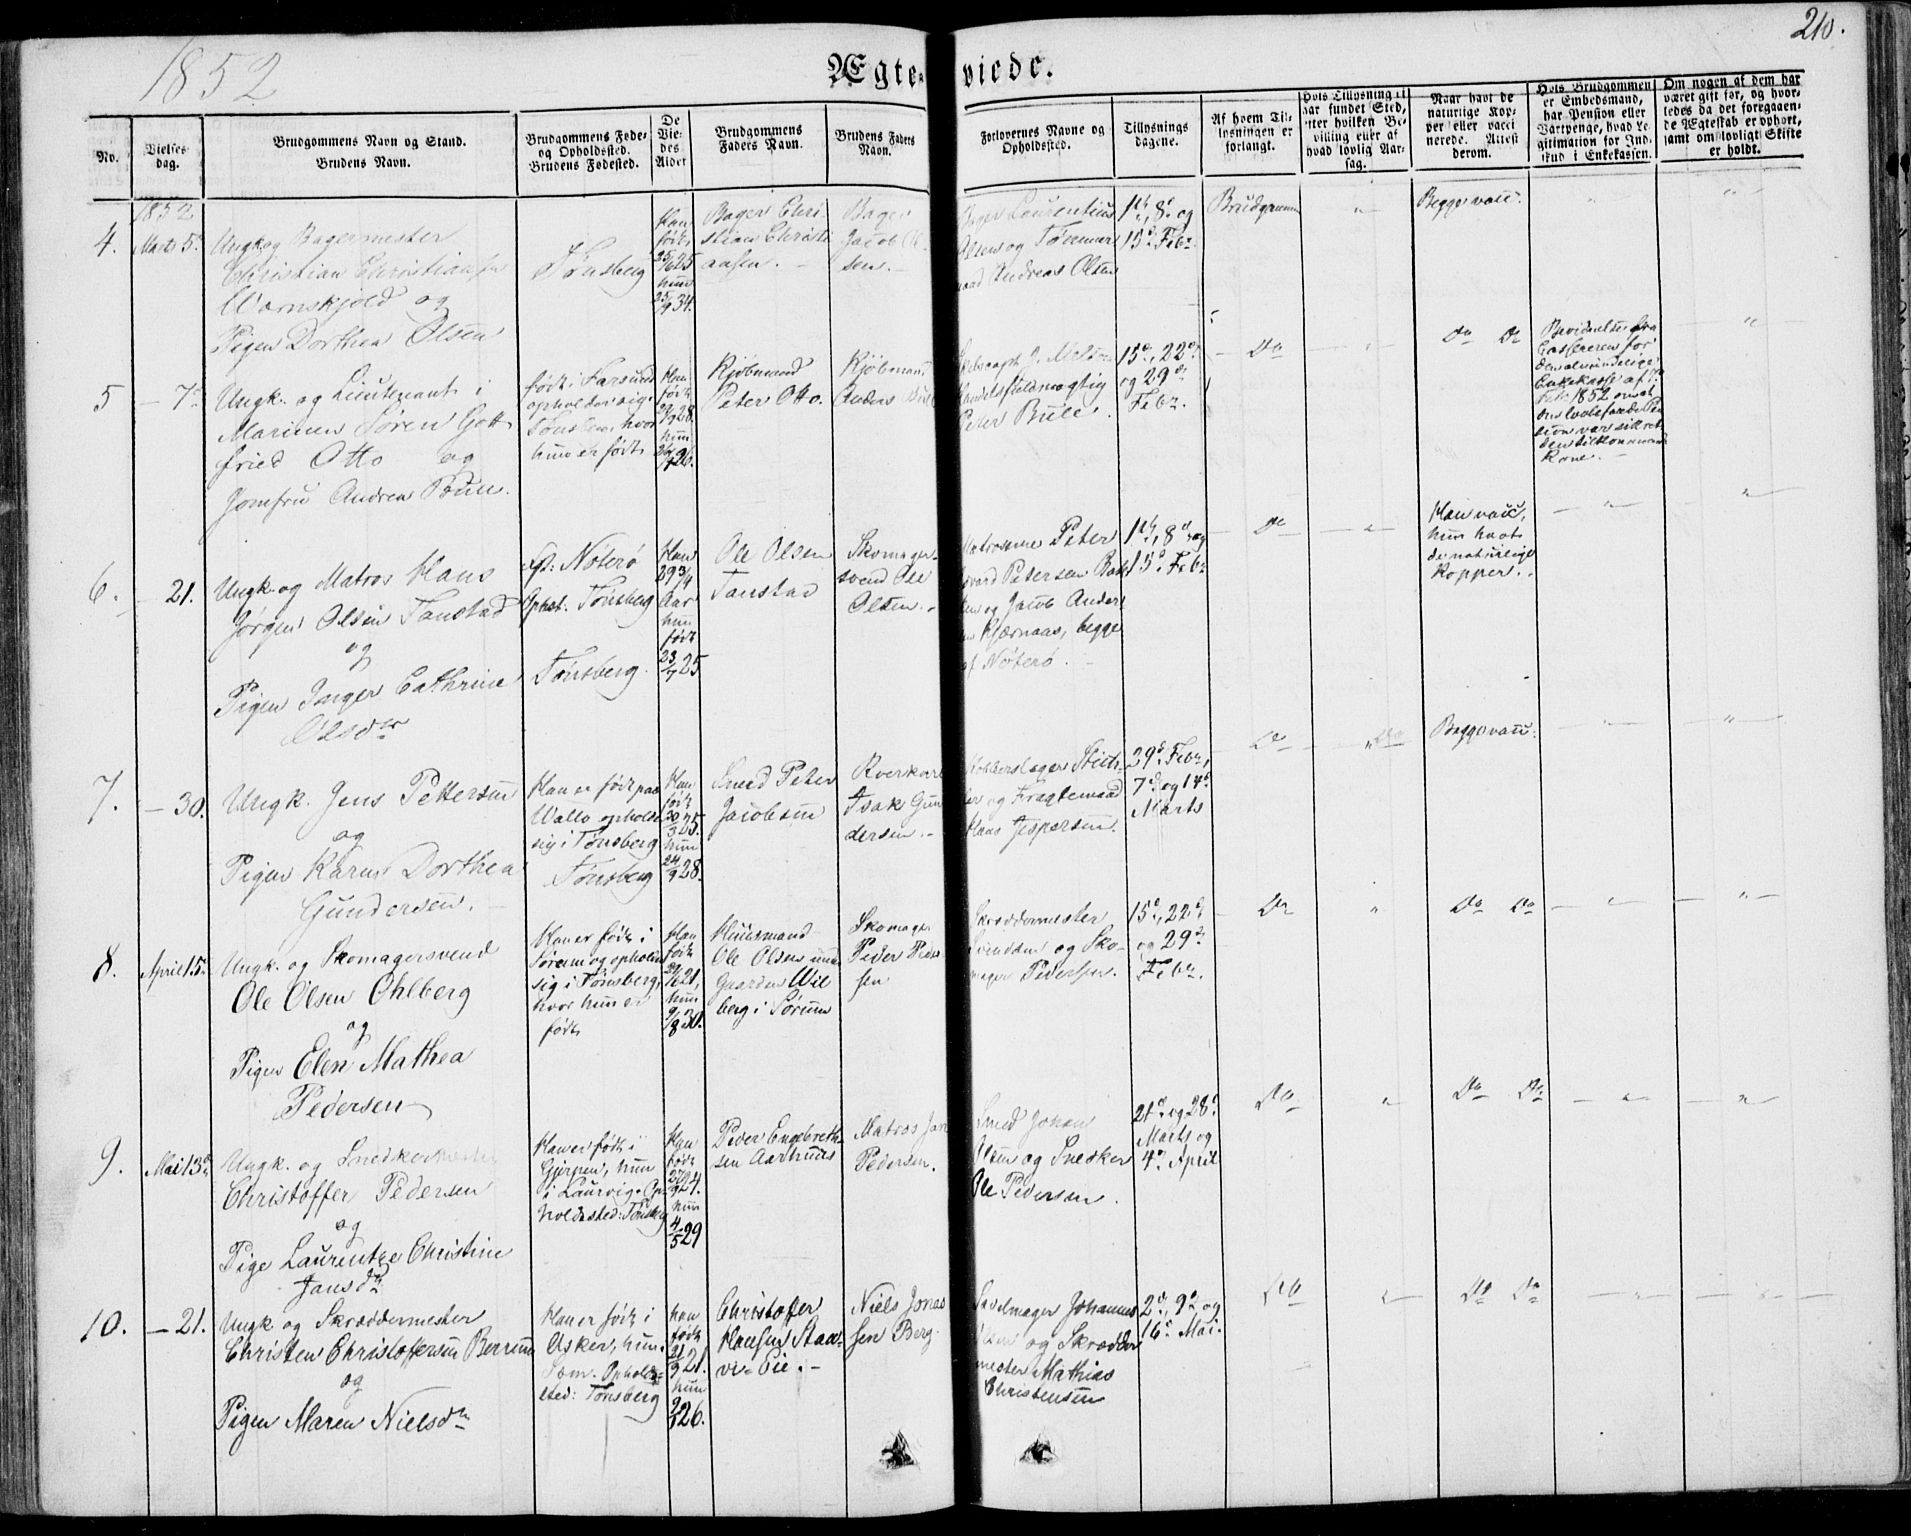 1852
Ægte-viede.
210.
No.
Vielses-
dag.
Brudgommens Navn og Stand.
Brudens Navn.
Brudgommens Føde-
og Opholdssted.
Brudens Fødested.
De
Vie-
des
Alder
Brudgommens
Faders Navn.
Brudens Faders
Navn.
Forlovernes Navne og
Opholdssted.
Tillysnings
dagene.
Af hvem Til-
lysningen er
forlangt.
Hvis Tillysning ei
har fundet Sted,
efter hvilken Be-
villing eller af
hvad lovlig Aar-
sag.
Naar havt de
naturlige Kop-
per eller vacci
nerede. Attest
derom.
Hvis Brudgommen
er Embedsmand,
har Pension eller
Vartpenge, hvad Le-
gitimation for Ind-
skud i Enkekassen.
Om nogen af dem har
været gift før, og hvor-
ledes da det foregaaen-
de Ægteskab er ophørt,
samt om lovligt Skifte
er holdt.
1852
4.
Marts 5.
Ungk og Bagermester
Christian Christiansen
Wornskjold og
Pigen Dorthea Olsen
Tønsberg
Han
født
25/6 25
hun
25/9 34.
Bager Chri-
stian Christi
ansen.
Bager
Jacob Ol-
sen.
Bager Laurentius
Olsen og Tømmer
mand Andreas Olsen
1ste, 8de og
15de Febr.
Brudgommen
"
Begge vacc.
"
"
5
- 7de
Ungk. og Lieutenant i
Marinen Søren Gott-
fried Otto og
Jomfru Andrea Bull.
født i Farsund
opholder sig i
Tønsberg, hvor
hun er født
Han
født
28.
hun
26.
Kjøbmand
Peter Otto.
Kjøbmand
Anders Bull
Handelsfuldmægtig
Peter Bull.
15de, 22de
og 29de
Febr.
Do
"
Do Do
Bevidnelse fra
Cassereren for
den almindelige
Enkekasse af
Febr. 1852 om at
den lovbefalede Pen
sion var sikret
den tilkommende
Kone.
"
6.
- 21.
Ungk. og Matros Hans
Jørgen Olsen Tanstad
og
Pigen Inger Cathrine
Olsdr
Fød: Nøterø
Ophst. Tønsberg
Tønsberg.
Han
29 3/4
Aar
hun
født
23/7 25
Ole Olsen
Tanstad
Skomager-
svend Ole
Olsen.
Matroserne Peter
Edvard Petersen
og Jacob Ander
sen Kjærnaas, begge
af Nøterø.
1ste, 8de og
15de Febr
Do
"
Han vacc,
hun havt
de naturlige
Kopper.
"
"
7.
- 30.
Ungk. Jens Pettersen
og
Pigen Karen Dorthea
Gundersen.
Han er født paa
Wallø opholder
sig i Tønsberg
Tønsberg
Han
født
30/3 25.
hun
24/9 28.
Smed Peter
Jacobsen
Isak Gun
dersen.
Kobberslager
og Fragtemand
Hans Jespersen.
29de Febr,
7de og 14de
Marts
Do
Do
Begge vacc.
"
"
8.
April 15.
Ungk. og Skomagersvend
Ole Olsen Ohlberg
og
Pigen Elen Mathea
Pedersen
Han er født i
Sørum og opholder
sig i Tønsberg,
hvor hun er
født
Han
født
21,
hun
9/8 30.
Huusmand
Ole Olsen under
Gaarden Wil
berg i Sørum
Skomager
Peder Peder
sen
Skræddermester
Svendsen og Sko-
mager Pedersen.
15de, 22de
og 29de
Febr.
Do
"
Do Do
"
"
9.
Mai 13de
Ungk. og Snedkermester
Christoffer Pedersen
og
Pige Laurentze Christine
Jansdr
Han er født i
Gjerpen, hun
i Laurvig. Op-
holdssted: Tønsberg
Han
født
24.
hun
4/5 29
Peder Engebreth-
sen Aarhuus
Matros Jan
Pedersen.
Smed Johan
Olsen og Snedker
Ole Pedersen.
21de og 28de
Marts og
4de April
Do
"
Do Do
"
"
10.
- 21.
Ungk og Skræddermester
Christen Christoffersen Berrum
og
Pigen Maren Nielsdr
Han er født i
Asker, hun i
Sem. Opholds-
sted: Tønsberg
Han
født
21/9 21.
hun
26.
Christoffer
Hansen Staa-
vi-Eie.
Niels Jonas
sen Berg.
Sadelmager Johannes
Olsen og Skrædder
mester Mathias
Christensen
2de, 9de og
16de Mai.
Do
"
Do Do
"
"